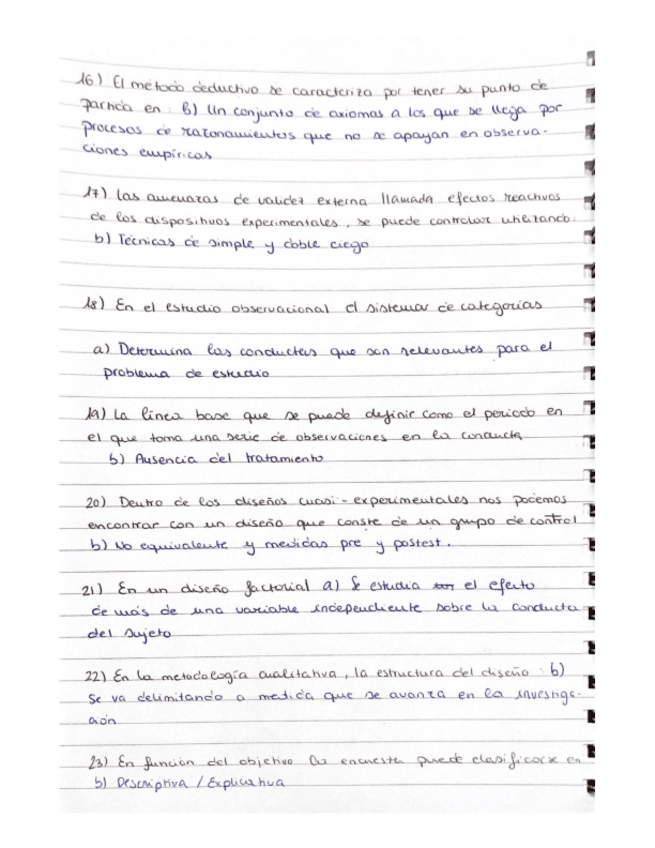 16) El método deductivo se caracteriza por tener su punto de
partida en: B) Un conjunto de axiomas a los que se llega por
procesos de razonamientos que no se apoyan en observa-
ciones empíricas
17) las amenazas de validez externa llamada efectos reactivos
de los dispositivos experimentales, se puede controlar utilizando:
b) Técnicas de simple y doble ciego
18) En el estudio observacional el sistema de categorías
a) Determina las conductas que son relevantes para el
problema de estudio
19) La línea base que se puede definir como el periodo en
el que toma una serie de observaciones en la conducta
b) Ausencia del tratamiento
20) Dentro de los diseños cuasi-experimentales nos podemos
encontrar con un diseño que conste de un grupo de control
b) No equivalente y medidas pre y postest.
21) En un diseño factorial a) Se estudia el efecto
de más de una variable independiente sobre la conducta
del sujeto
22) En la metodología cualitativa, la estructura del diseño: b)
Se va delimitando a medida que se avanza en la investiga-
ción
23) En función del objetivo la encuesta puede clasificarse en
b) Descriptiva / Explicativa